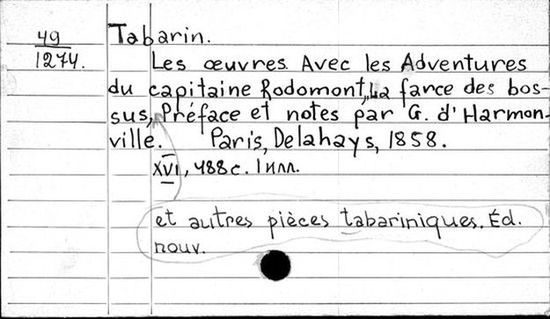 49
1274.
Tabarin.
Les œuvres. Avec les Adventures
du capitaine Rodomont, La farce des bos-
sus, Préface et notes par G. d'Harmon-
ville. Paris, Delahays, 1858.
XVI, 488 c. 1 илл.
et autres pièces tabariniques. Éd.
nouv.